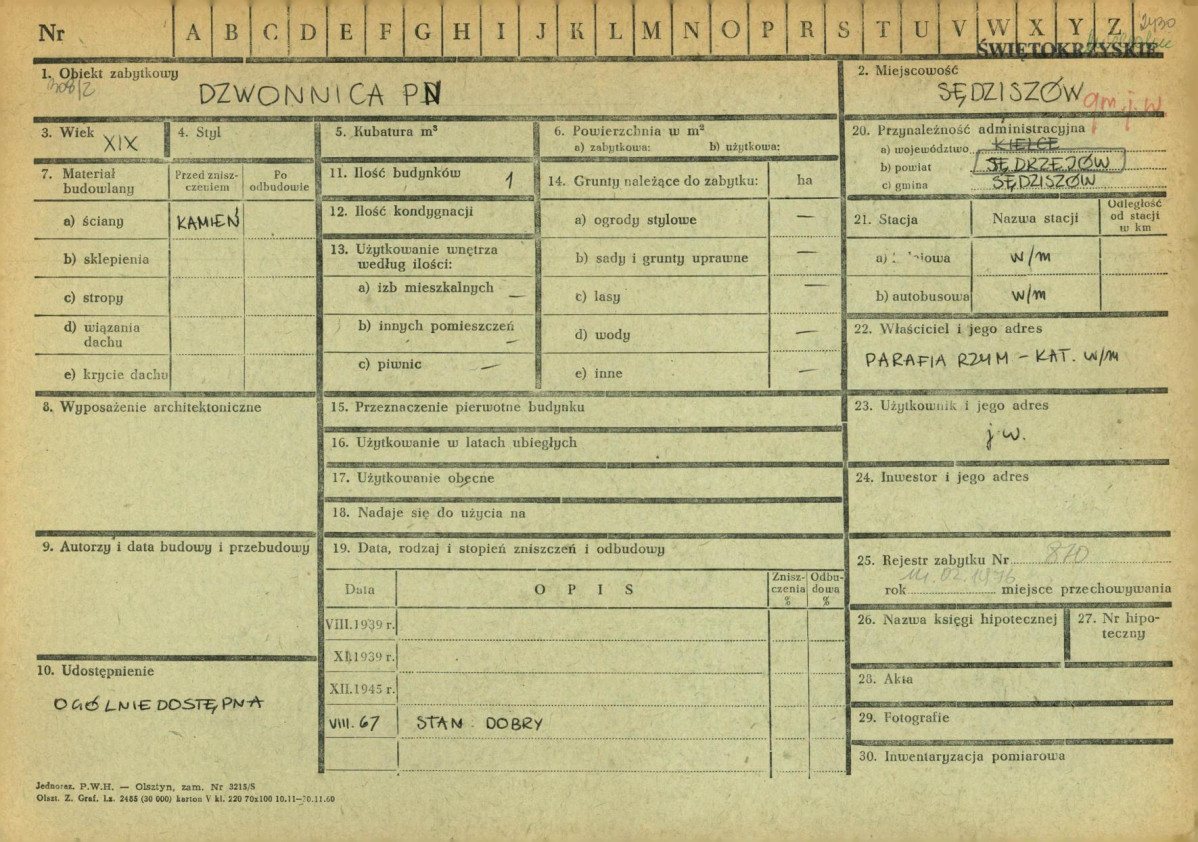 Nr A B C D E F G H I J K L M N O P R S T U V W X Y Z 2430
ŚWIĘTOKRZYSKIE
1. Obiekt zabytkowy
308/2
DZWONNICA PN
2. Miejscowość
SĘDZISZÓW gm. j. w
3. Wiek XIX
4. Styl
5. Kubatura m³
6. Powierzchnia w m²
a) zabytkowa: b) użytkowa:
20. Przynależność administracyjna
a) województwo KIELCE
b) powiat JĘDRZEJÓW
c) gmina SĘDZISZÓW
7. Materiał budowlany
Przed znisz-
czeniem
Po
odbudowie
a) ściany KAMIEŃ
b) sklepienia
c) stropy
d) wiązania
dachu
e) krycie dachu
11. Ilość budynków 1
12. Ilość kondygnacji
13. Użytkowanie wnętrza
według ilości:
a) izb mieszkalnych —
b) innych pomieszczeń —
c) piwnic —
14. Grunty należące do zabytku: ha
a) ogrody stylowe —
b) sady i grunty uprawne —
c) lasy —
d) wody —
e) inne —
21. Stacja
Nazwa stacji
Odległość
od stacji
w km
a) w/m
b) autobusowa w/m
22. Właściciel i jego adres
PARAFIA RZYM – KAT. w/m
8. Wyposażenie architektoniczne
15. Przeznaczenie pierwotne budynku
16. Użytkowanie w latach ubiegłych
17. Użytkowanie obecne
18. Nadaje się do użycia na
23. Użytkownik i jego adres
j w.
24. Inwestor i jego adres
9. Autorzy i data budowy i przebudowy
19. Data, rodzaj i stopień zniszczeń i odbudowy
Data
O P I S
Znisz-
czenia
%
Odbu-
dowa
%
VIII.1939 r.
XI.1939 r.
XII.1945 r.
VIII. 67 STAN DOBRY
25. Rejestr zabytku Nr 870
11.02.1976
rok miejsce przechowywania
26. Nazwa księgi hipotecznej
27. Nr hipo-
teczny
28. Akta
29. Fotografie
30. Inwentaryzacja pomiarowa
10. Udostępnienie
OGÓLNIE DOSTĘPNA
Jednoraz. P.W.H. — Olsztyn, zam. Nr 3215/S
Olszt. Z. Graf. Lz. 2485 (30 000) karton V kl. 220 70x100 10.11—